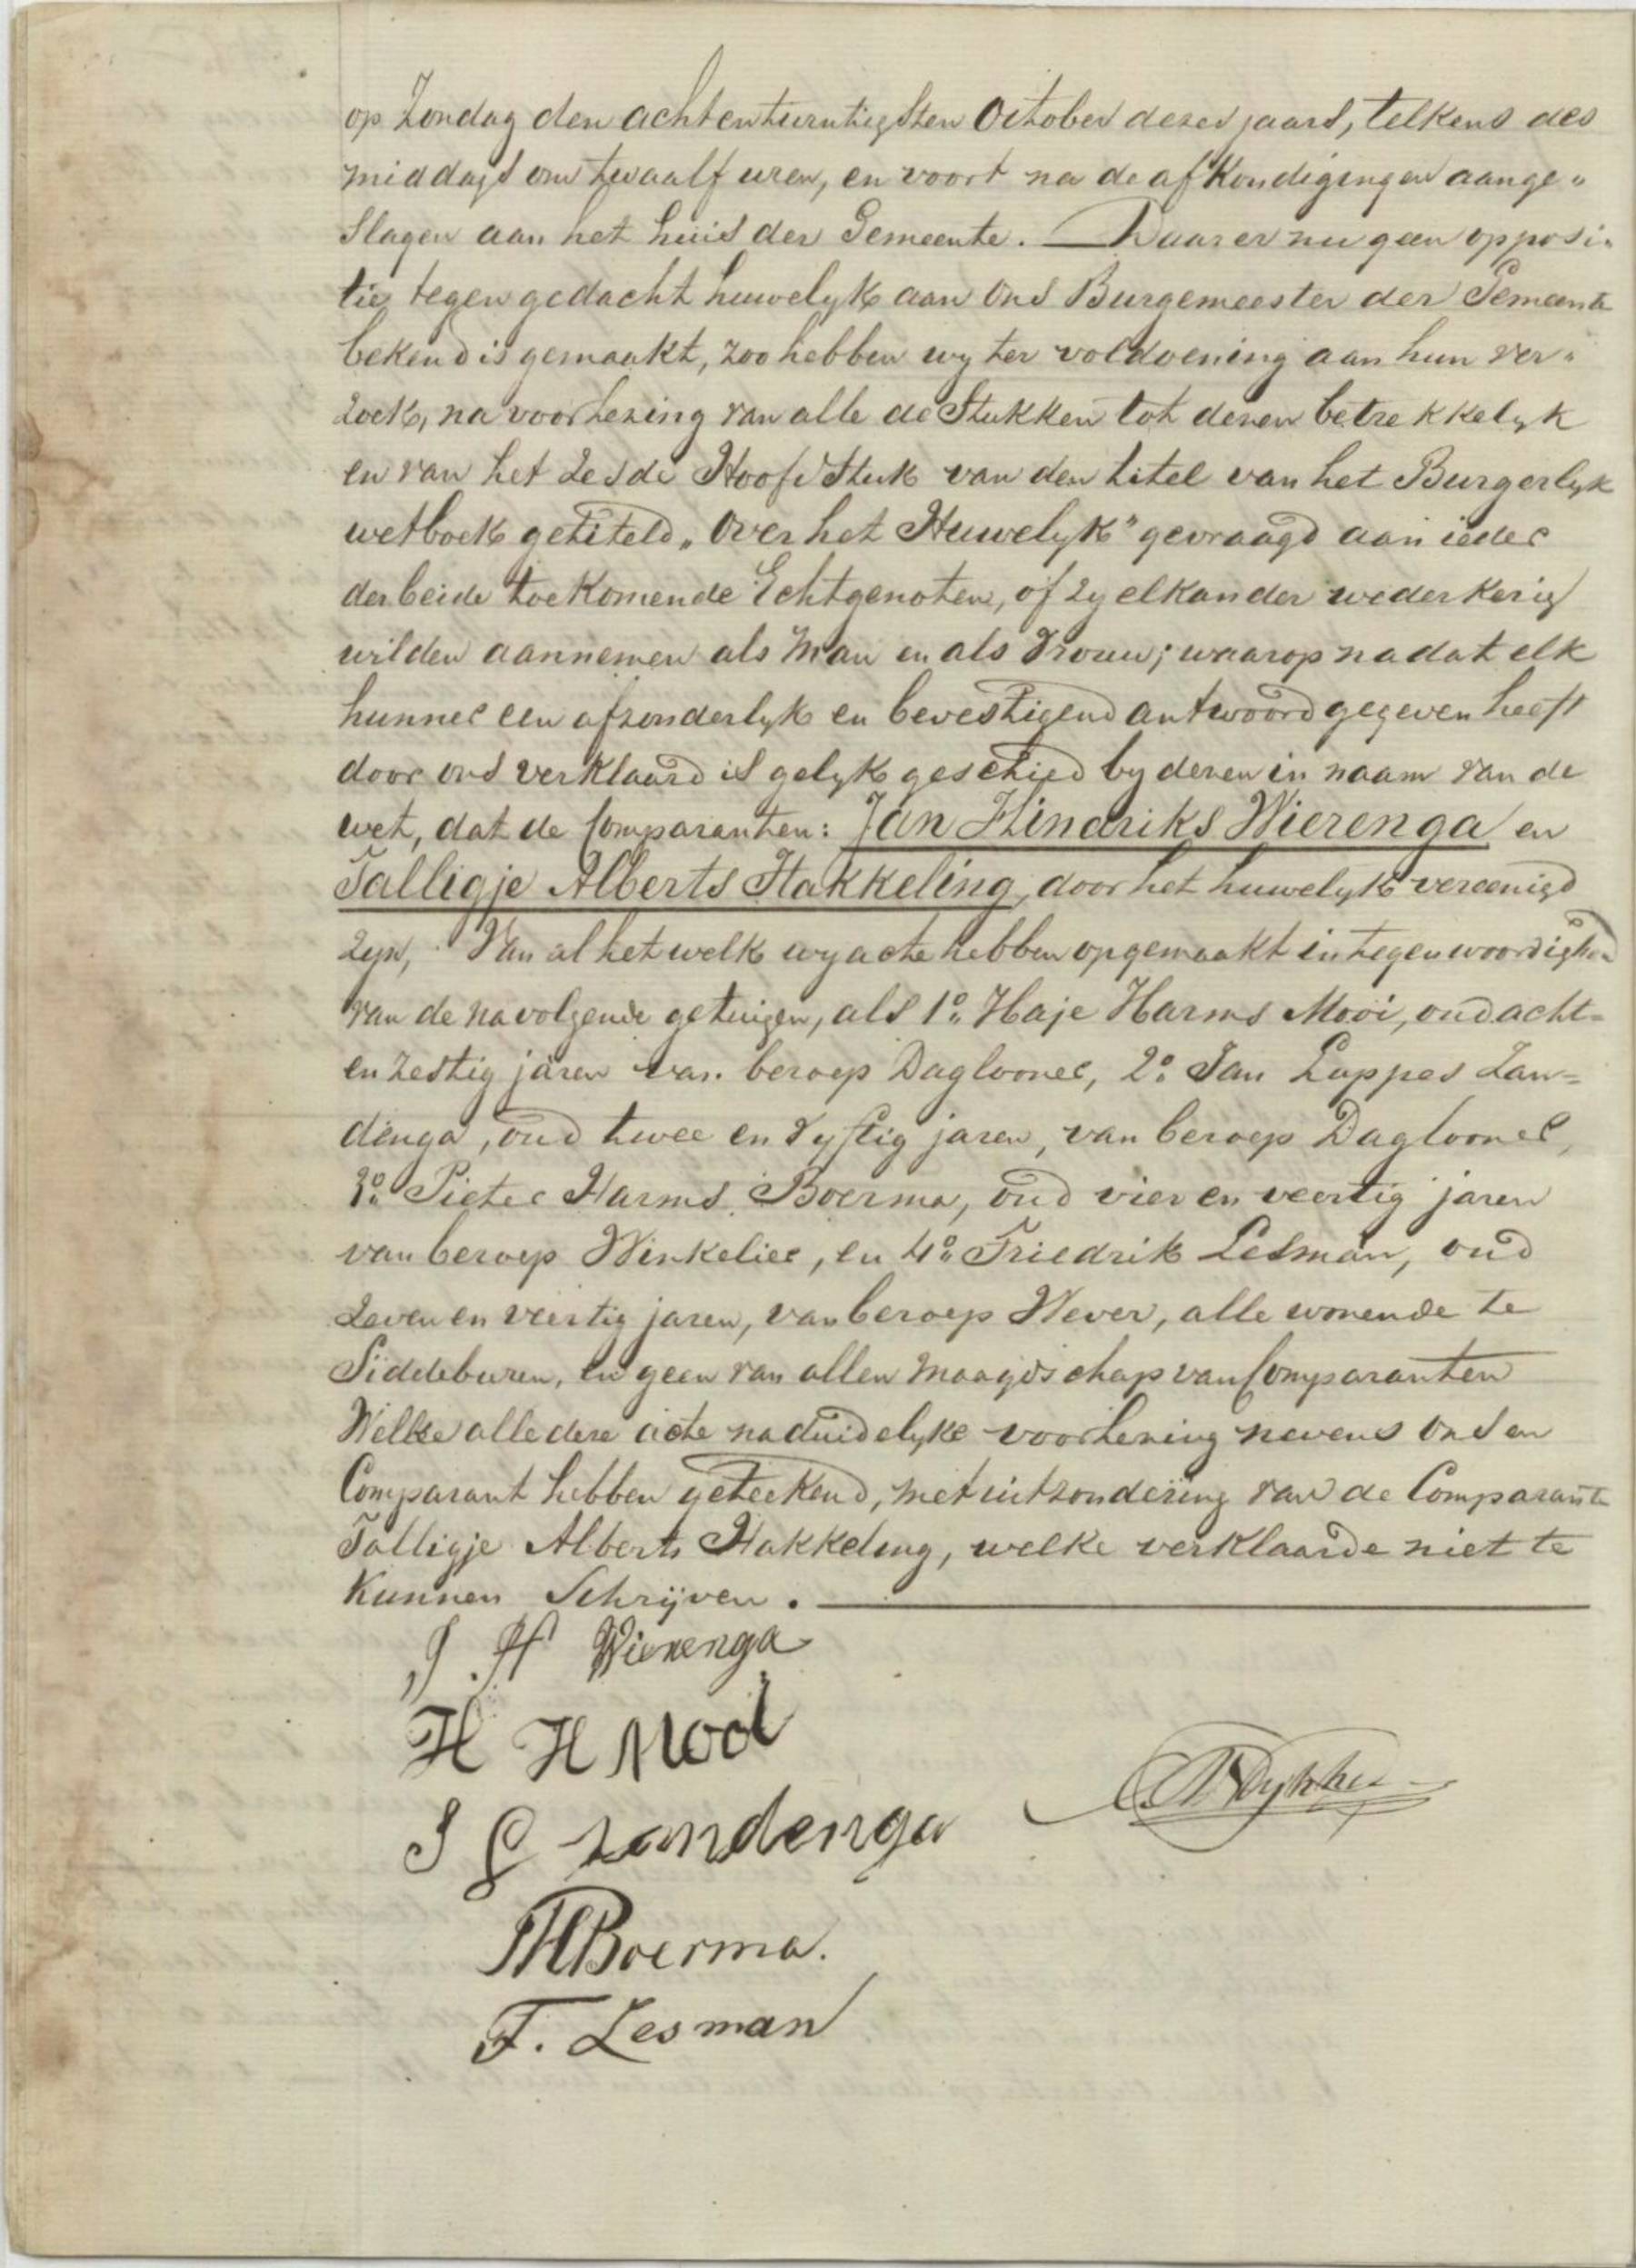 op Zondag den achtentwintigsten October dezes jaars, telkens des
middags om twaalf uren, en voort na de afkondigingen aange„
slagen aan het huis der Gemeente. — Daar er nu geen opposi„
tie tegen gedacht huwelyk aan Ons Burgemeester der Gemeente
bekend is gemaakt, zoo hebben wy ter voldoening aan hun ver„
zoek, na voorlezing van alle de Stukken tot dezen betrekkelyk
en van het Zesde Hoofdstuk van den titel van het Burgerlyk
wetboek getiteld „Over het Huwelyk" gevraagd aan ieder
der beide toekomende Echtgenoten, of zy elkander wederkerig
wilden aannemen als Man en als Vrouw; waarop nadat elk
hunner een afzonderlyk en bevestigend antwoord gegeven heeft
door ons verklaard is gelyk geschied by dezen in naam van de
wet, dat de Comparanten: Jan Hindriks Wierenga en
Talligje Alberts Hakkeling, door het huwelyk vereenigd
zyn, Van al het welk wy acte hebben opgemaakt in tegenwoordigheid
van de navolgende getuigen, als 1º Haje Harms Mooi, oud acht=
en zestig jaren van beroep Daglooner, 2º Jan Luppes Zan=
denga, oud twee en vyftig jaren, van beroep Daglooner,
3º Pieter Harms Boerma, oud vier en veertig jaren
van beroep Winkelier, en 4º Friedrik Lesman, oud
zeven en veertig jaren, van beroep Wever, alle wonende te
Siddeburen, en geen van allen maagdschap van Comparanten
Welke alle deze acte na duidelyke voorlezing nevens Ons en
Comparant hebben geteekend, met uitzondering van de Comparante
Talligje Alberts Hakkeling, welke verklaarde niet te
Kunnen Schrijven.
J H Wierenga
H H Mooi
J L Zandenga
PHBoerma.
F. Lesman